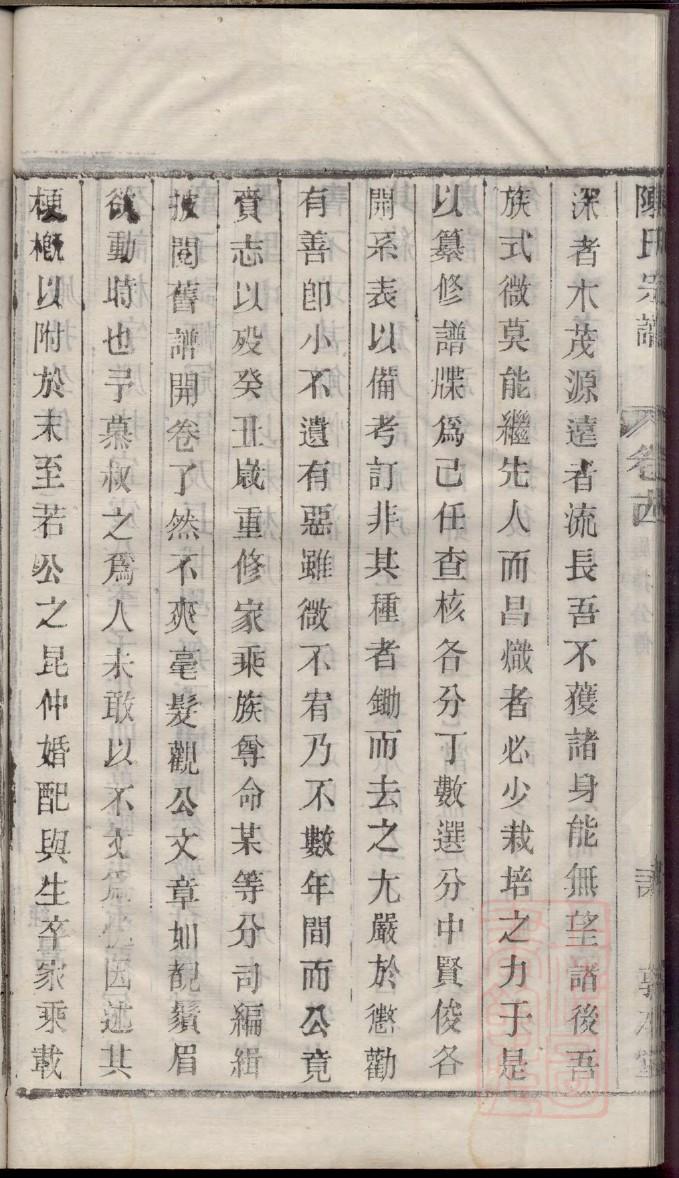 陳氏宗譜 卷四
深者木茂源遠者流長吾不獲諸身能無望諸後吾
族式微莫能繼先人而昌熾者必少栽培之力于是
以纂修譜牒爲己任查核各分丁數選分中賢俊各
開系表以備考訂非其種者鋤而去之尢嚴於懲勸
有善卽小不遺有惡雖微不宥乃不數年間而公竟
賫志以殁癸丑嵗重修家乘族尊命某等分司編緝
披閱舊譜開卷了然不爽毫髮觀公文章如覩鬚眉
欲動時也予慕叔之爲人未敢以不文爲因述其
梗槪以附於末至若公之昆仲婚配與生卒家乘載